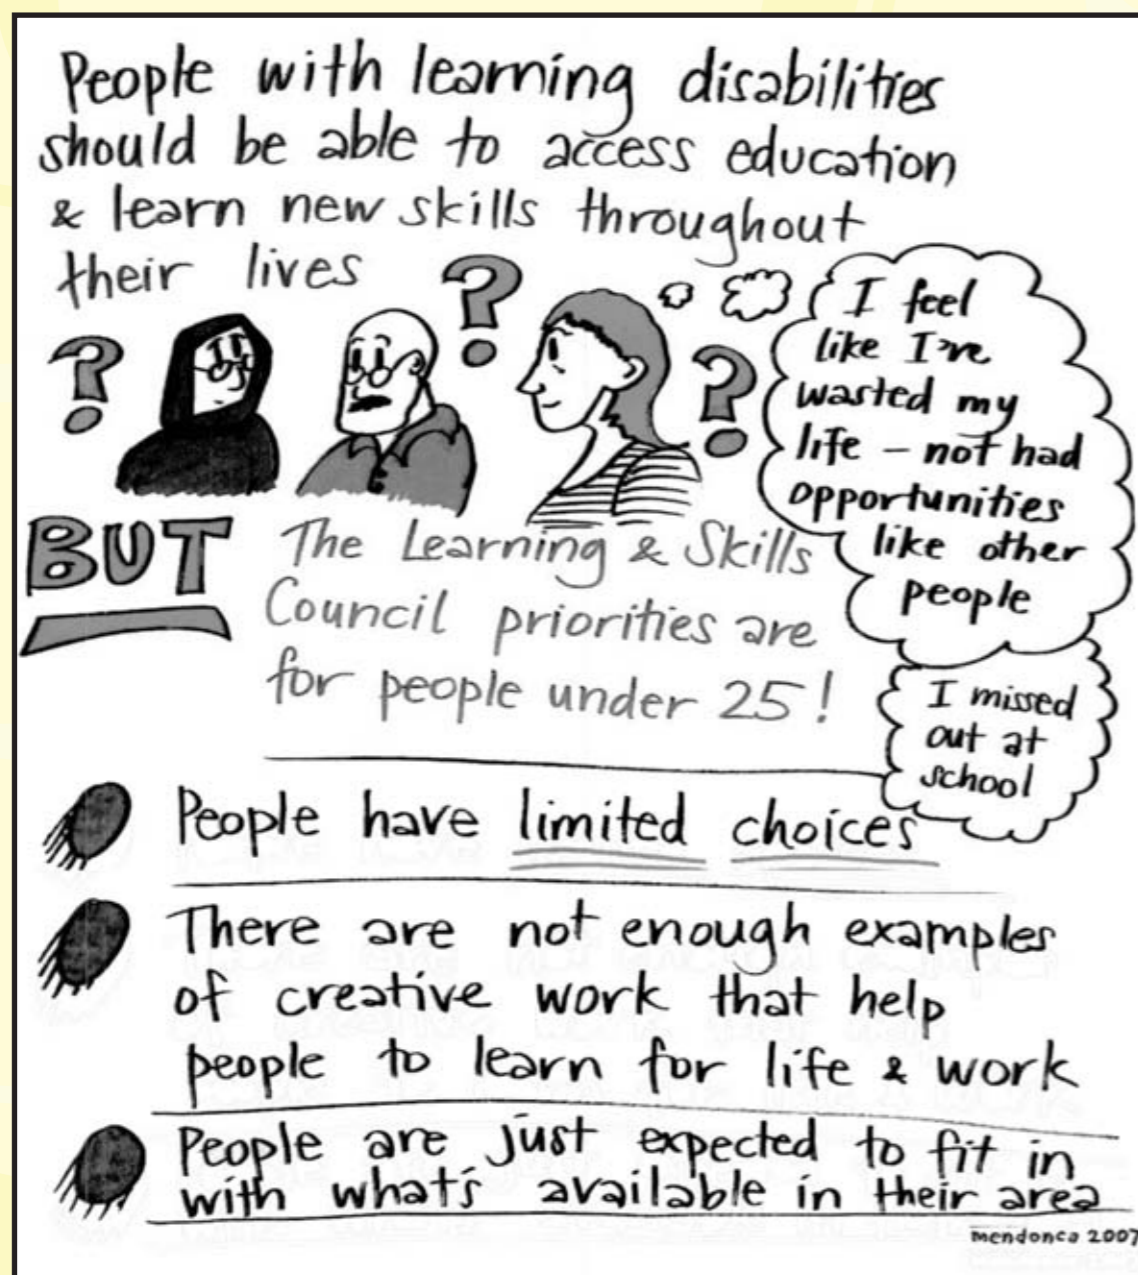 People with learning disabilities
should be able to access education
& learn new skills throughout
their lives
? ? ?
I feel
like I've
wasted my
life – not had
opportunities
like other
people
I missed
out at
school
BUT
The Learning & Skills
Council priorities are
for people under 25!
People have limited choices
There are not enough examples
of creative work that help
people to learn for life & work
People are just expected to fit in
with what's available in their area
mendonca 2007